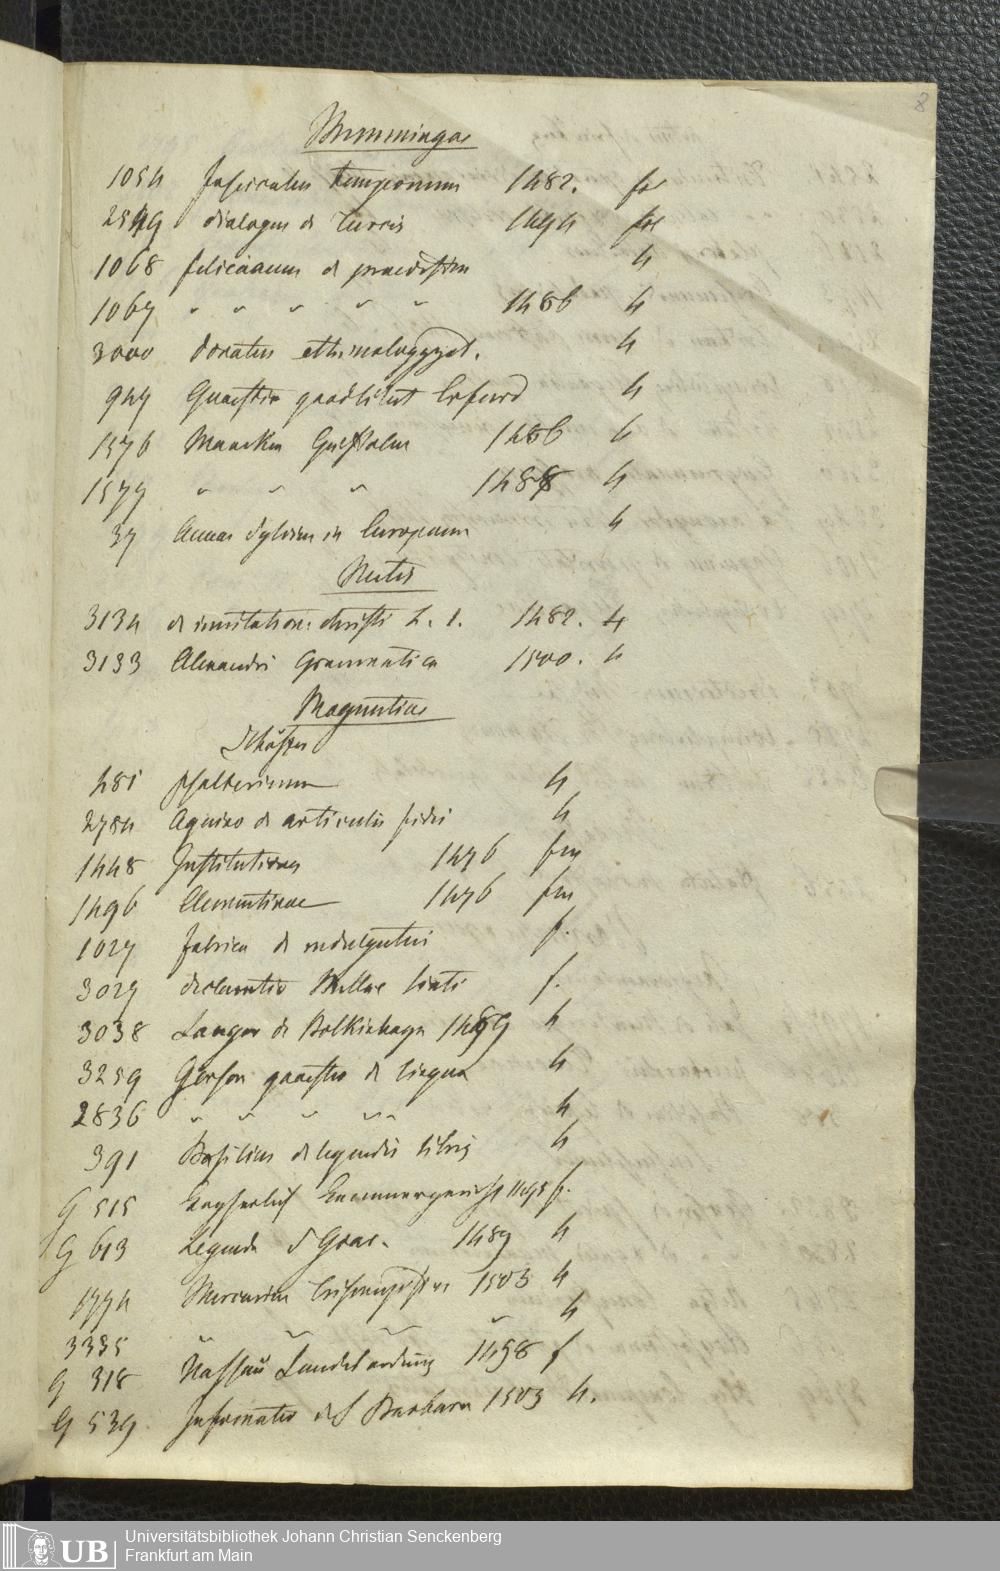 8
Memmingae
1054 fasciculus temporum 1482. fr
2549 dialogus de Turris 1494 fr
1068 felicianus de praedestin 4
1067 " " " " " 1486 4
3000 donatus ethimologyzat. 4
947 Quaestio quodlibet Erfurd 4
1576 1486 4
1577 " " " 1488 4
37 Aeneas Sylvius in Europam 4
Metis
3134 de imitatione christi L. 1. 1482. 4
3133 Alexandri Grammatica 1500. 4
Maguntiae
Schöffer
481 psalterium 4
2784 Aquino de articulis fidei 4
1448 Institutiones 1476 fm
1496 Clementinae 1476 fm
1027 fabrica de indulgentiis f.
3029 declaratio Bullae Sixti f.
3038 Langer de 4
3259 Gerson quaestio de lingua 4
2836 " " " " " 4
391 Basilius de legendis libris 4
G 515 Kayserlich Cammergericht 1495 f.
G 613 Legenda S Goar. 1489 4
1774 Mercurius 1503 4
3335 " " " " 4
G 318 Nassau Landesordnung 1498 f
G 539 Informatio de S Barbara 1503 4.
UB
Universitätsbibliothek Johann Christian Senckenberg
Frankfurt am Main